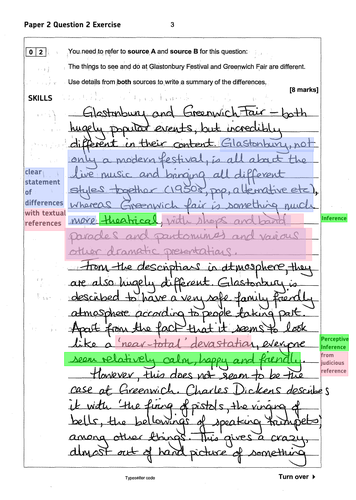 Paper 2 Question 2 Exercise
3
0 2
You need to refer to source A and source B for this question:
The things to see and do at Glastonbury Festival and Greenwich Fair are different.
Use details from both sources to write a summary of the differences.
[8 marks]
SKILLS
Glastonbury and Greenwich Fair – both
hugely popular events, but incredibly
different in their content. Glastonbury, not
only a modern festival, is all about the
live music and bringing all different
styles together (1950s, pop, alternative etc),
whereas Greenwich fair is something much
more theatrical, with shops and band
parades and pantomimes and various
other dramatic presentations.
clear
statement
of
differences
with textual
references
Inference
From the descriptions in atmosphere, they
are also hugely different. Glastonbury is
described to have a very safe family friendly
atmosphere according to people taking part.
Apart from the fact that it seems to look
like a 'near-total' devastation, everyone
seem relatively calm, happy and friendly.
Perceptive
Inference
from
judicious
reference
However, this does not seem to be the
case at Greenwich. Charles Dickens describes
it with 'the firing of pistols, the ringing of
bells, the bellowings of speaking trumpets'
among other things. This gives a crazy,
almost out of hand picture of something
Typesetter code
Turn over